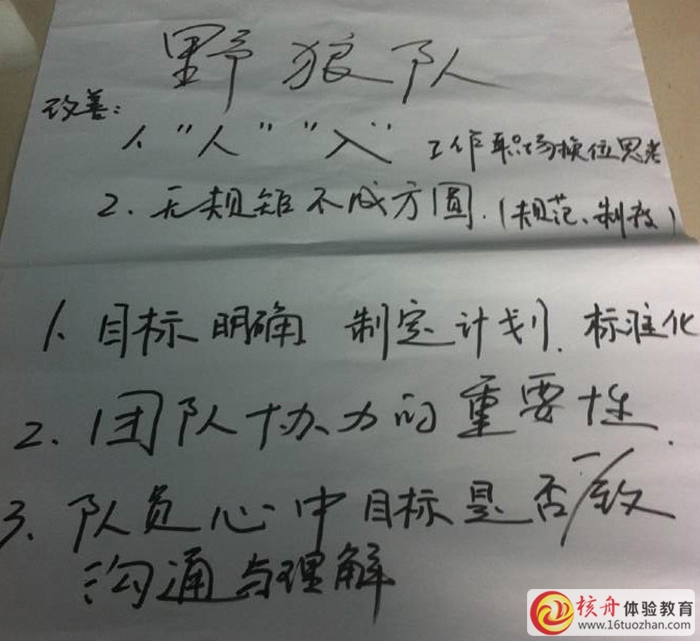 野狼队
改善：
1、"人""入" 工作职场换位思考
2、无规矩不成方圆.(规范、制度)
1、目标明确 制定计划、标准化
2、团队协力的重要性.
3、队员心中目标是否一致
沟通与理解
核舟体验教育
www.16tuozhan.com